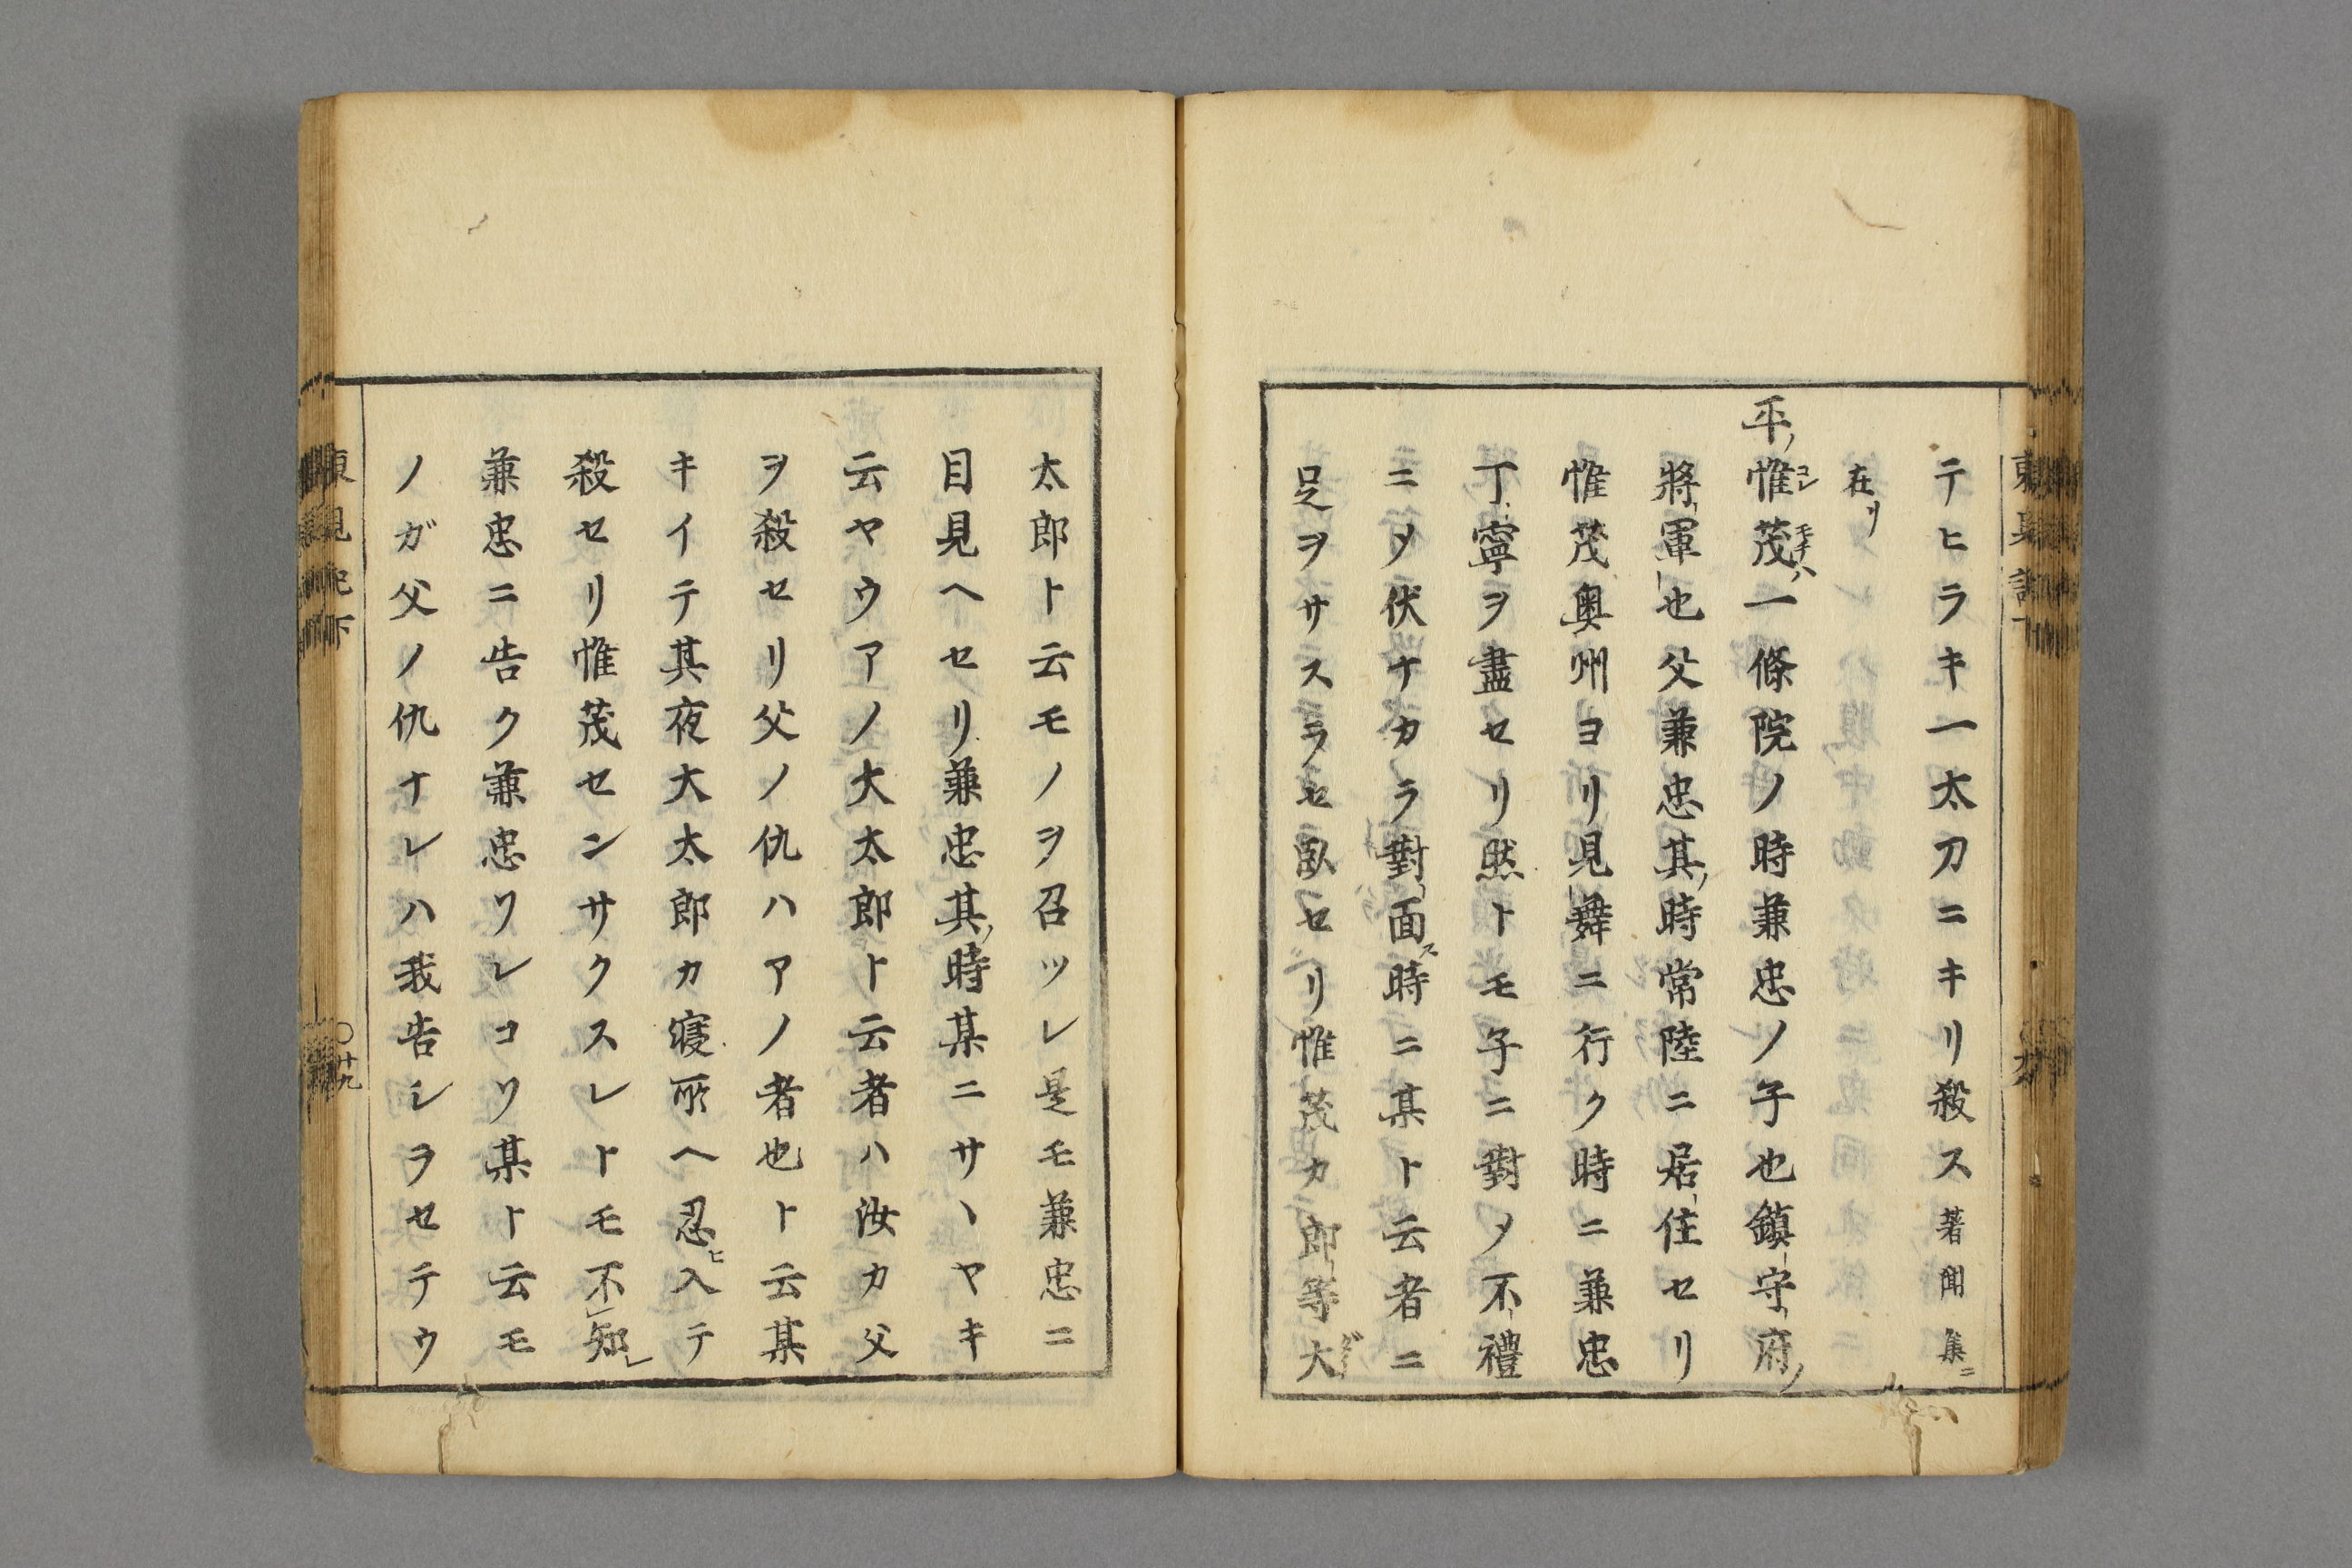 テヒラキ一太刀ニキリ殺ス著聞集ニ
在リ
平ノ惟茂ハ一條院ノ時兼忠ノ子也鎮守府ノ
コレモチ
將軍也父兼忠其ノ時常陸ニ居住セリ
惟茂奥州ヨリ見舞ニ行ク時ニ兼忠
丁寧ヲ盡セリ然トモ子ニ對メ不禮
ニメ伏ナカラ對面ス時ニ某ト云者ニ
足ヲサスラセ臥セリ惟茂カ郎等大
太郎ト云モノヲ召ツレ是モ兼忠ニ
目見ヘセリ兼忠其ノ時某ニサヽヤキ
云ヤウアノ大太郎ト云者ハ汝カ父
ヲ殺セリ父ノ仇ハアノ者也ト云某
キイテ其夜大太郎カ寝所ヘ忍ヒ入テ
殺セリ惟茂センサクスレトモ不知レ
兼忠ニ告ク兼忠ワレコソ某ト云モ
ノガ父ノ仇ナレハ我告シラセテウ
〇廿九